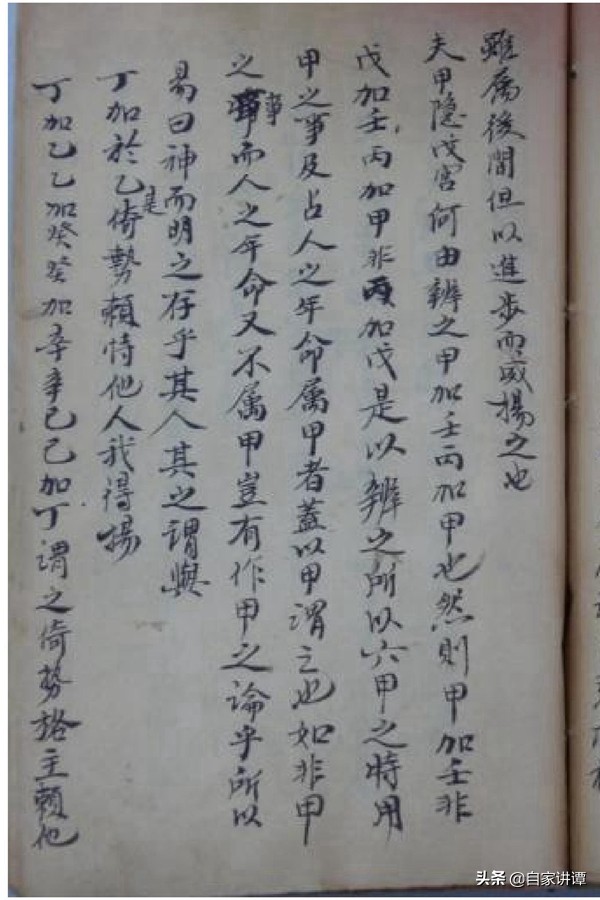 雖屬後間但以進步而威揚之也
夫甲隐戊宮何由辨之甲加壬丙加甲也然則甲加壬非
戊加壬丙加甲非丙加戊是以辨之所以六甲之時用
甲之事及占人之年命属甲者蓋以甲謂之也如非甲
之事而人之年命又不属甲豈有作甲之論乎所以
易曰神而明之存乎其人其是之謂與
丁加於乙倚勢賴恃他人我得揚
丁加乙乙加癸癸加辛辛加己己加丁謂之倚势格主賴他
头条 @自家讲谭